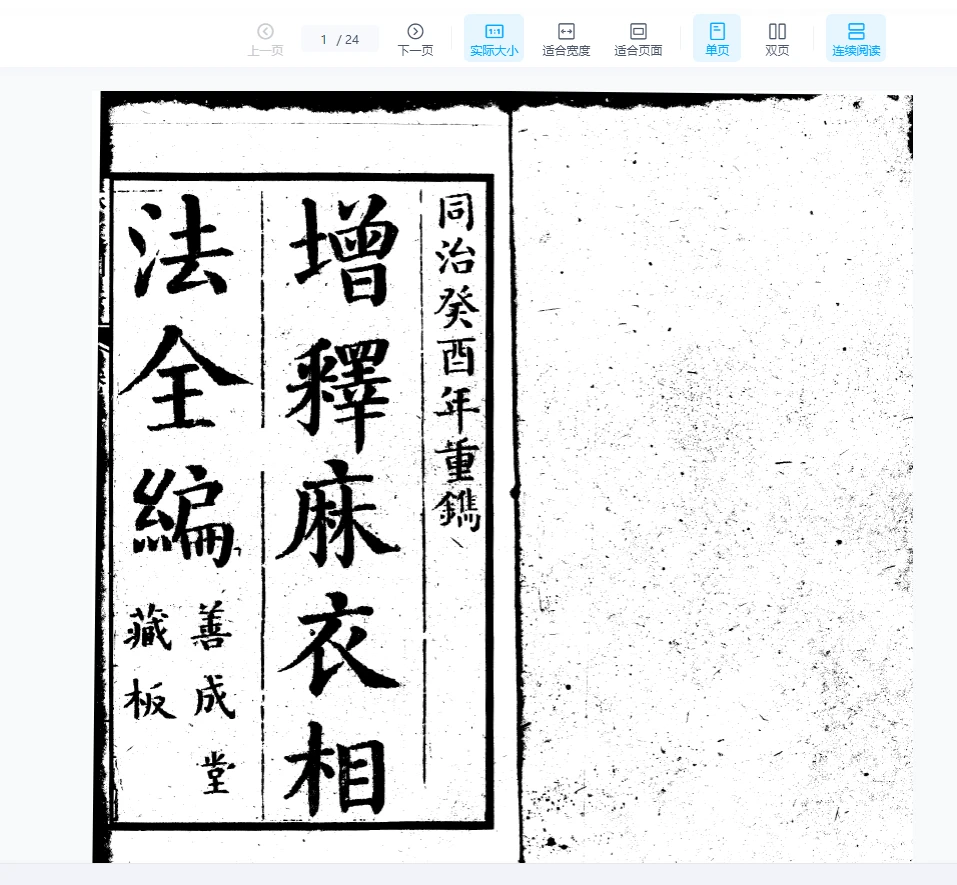 上一页
1 / 24
下一页
实际大小
适合宽度
适合页面
单页
双页
连续阅读
同治癸酉年重鐫
增釋麻衣相
法全編
善成堂
藏板